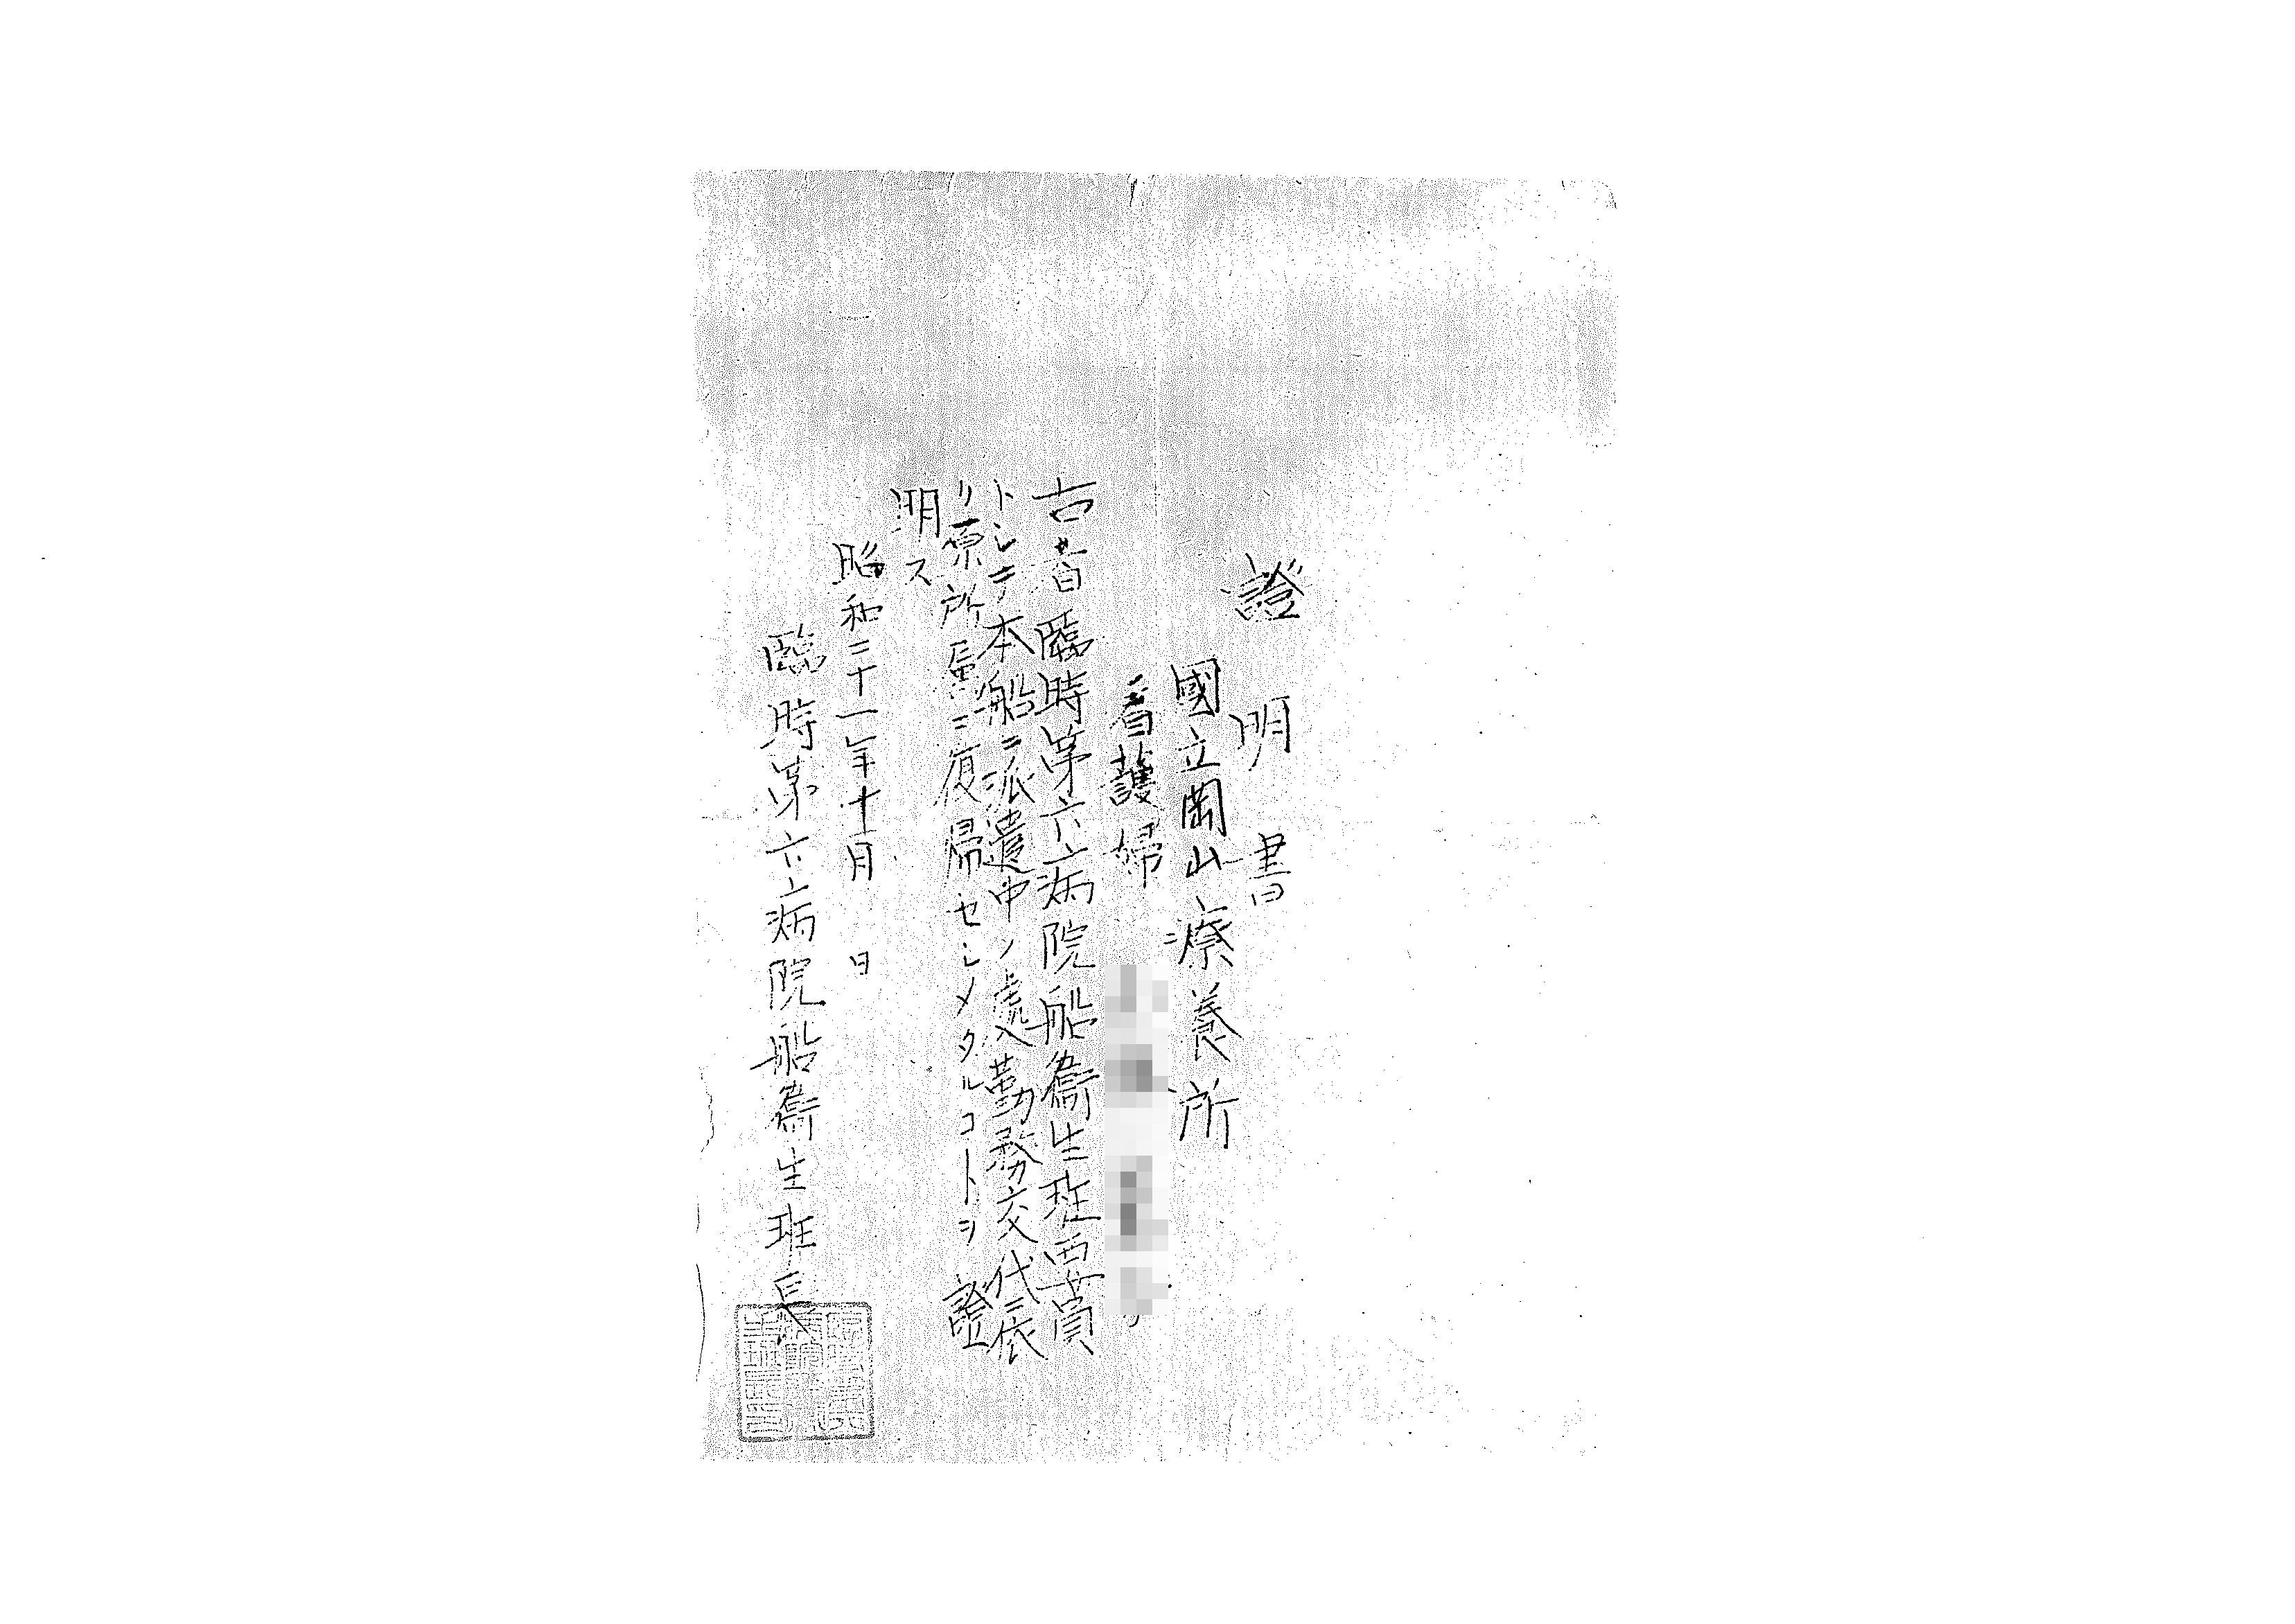 證明書
國立岡山療養所
看護婦
右者臨時第六六病院船衞生班要員
トシテ本船ニ派遣中ノ處勤務交代ニ依
リ原所屬ニ復帰セシメタルコトヲ證
明ス
昭和二十一年十一月 日
臨時第六六病院船衞生班長